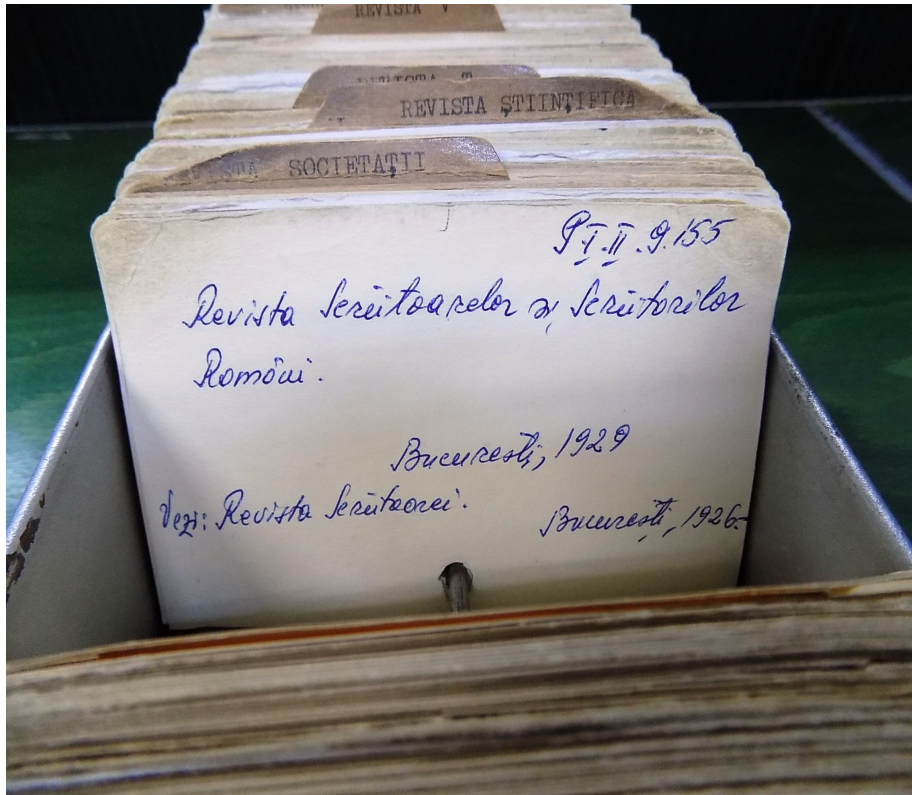 REVISTA V
REVISTA T
REVISTA ȘTIINȚIFICA
REVISTA SOCIETAȚII
P.I.II.9.155
Revista Scriitoarelor și Scriitorilor
Români.
București, 1929
Vezi: Revista Scriitoarei.
București, 1926-